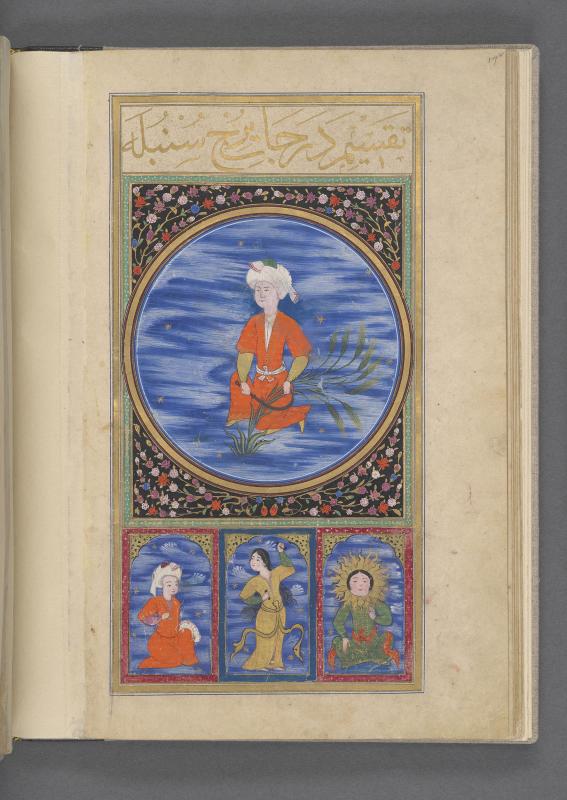 تقسیم درجات برج سنبله